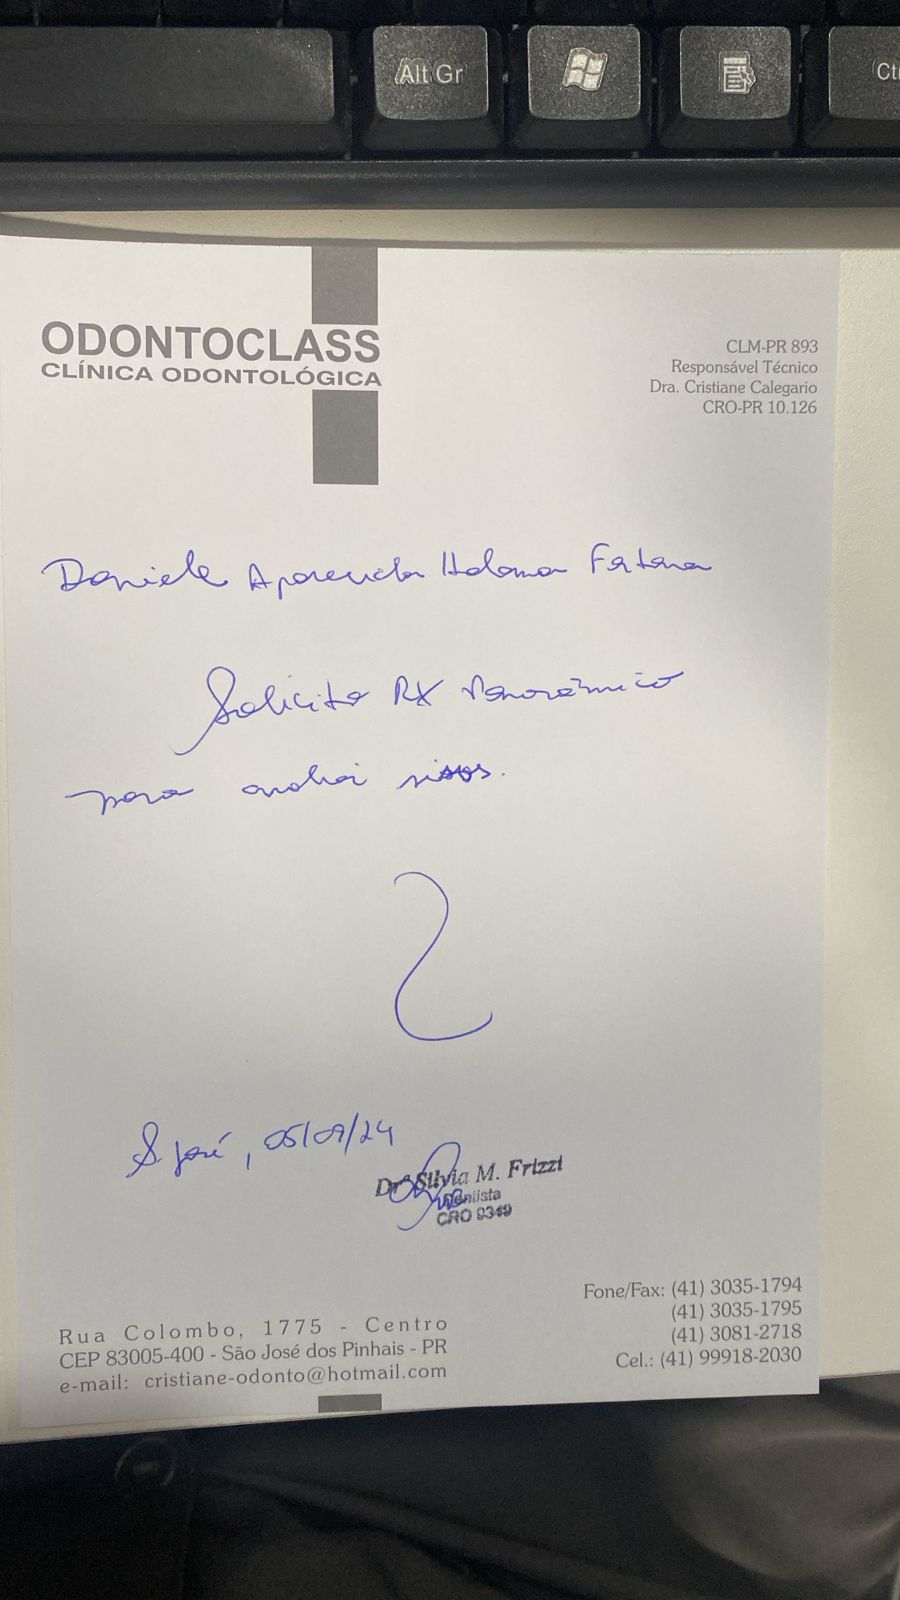 Alt Gr
Ctr
ODONTOCLASS
CLÍNICA ODONTOLÓGICA
CLM-PR 893
Responsável Técnico
Dra. Cristiane Calegario
CRO-PR 10.126
Daniele Aparecida
Solicito RX Panorâmico
para
S. José, 05/09/24
Drª Silvia M. Frizzi
Dentista
CRO 9349
Fone/Fax: (41) 3035-1794
(41) 3035-1795
(41) 3081-2718
Cel.: (41) 99918-2030
Rua Colombo, 1775 - Centro
CEP 83005-400 - São José dos Pinhais - PR
e-mail: cristiane-odonto@hotmail.com